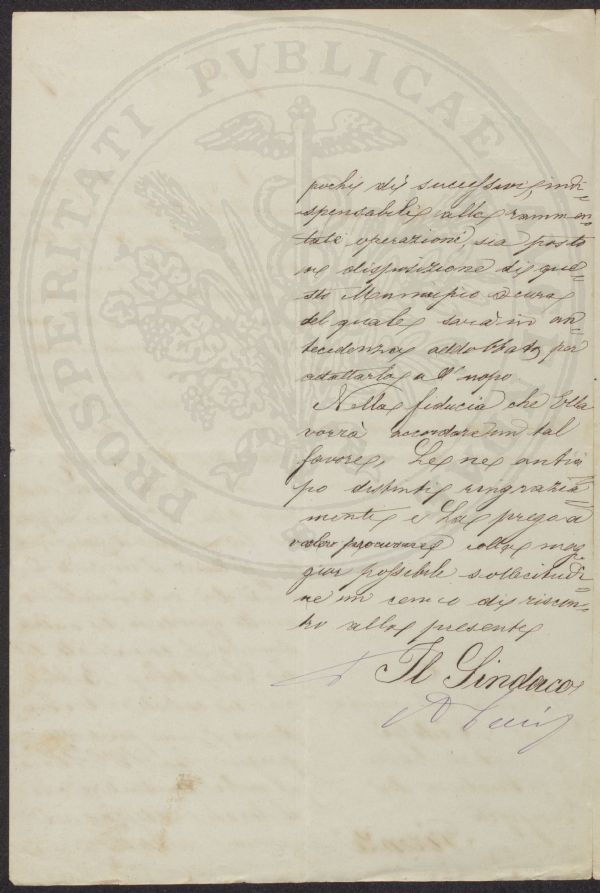 PROSPERITATI PVBLICAE
pochi dì successivi, indi=
spensabili alle rammen=
tate operazioni, sia posto
a disposizione di que=
sto Municipio a cura
del quale sarà in an=
tecedenza addobbato per
adattarlo a l'uopo
Nella fiducia che Ella
vorrà accordare un tal
favore, Le ne antici
po distinti ringrazia
menti e La prego a
voler colla mag
gior possibile sollecitudi=
ne un cenno di riscon=
tro alla presente
Il Sindaco